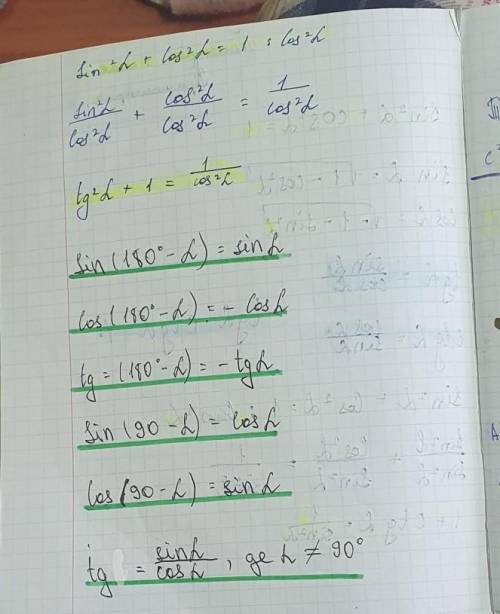 sin²α + cos²α = 1 : cos²α
sin²α/cos²α + cos²α/cos²α = 1/cos²α
tg²α + 1 = 1/cos²α
sin(180° - α) = sinα
cos(180° - α) = - cosα
tg = (180° - α) = - tgα
sin(90 - α) = cosα
cos(90 - α) = sinα
tg = sinα/cosα, ge α ≠ 90°